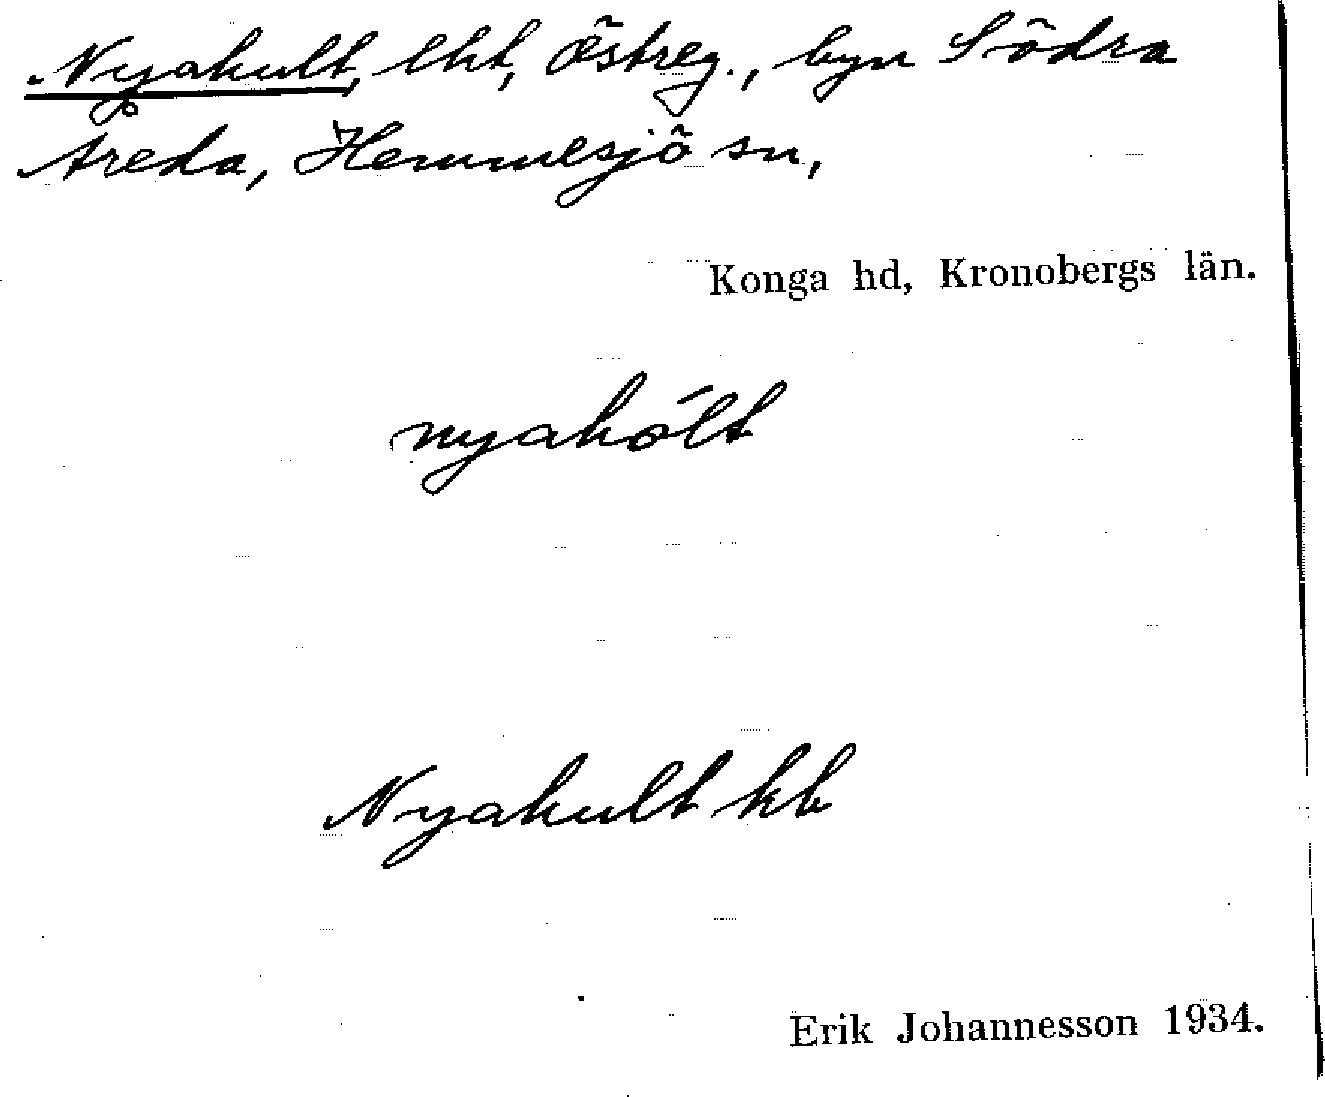 Nyakult, lht, Östreg., byn Södra
Åreda, Hemmesjö sn,
Konga hd, Kronobergs län.
nyakólt
Nyakult kb
Erik Johannesson 1934.